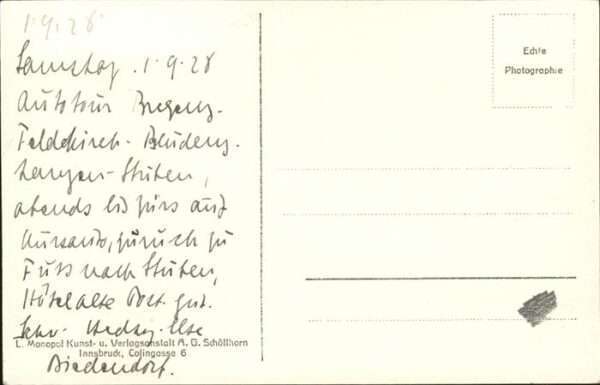 1.9.28
Samstag. 1.9.28
Autotour Bregenz-
Feldkirch-Bludenz-
Langen-Stuben,
abends bis auf
zurück zu
Fuss nach Stuben,
Hotel alte Post gut.
Ilse
L. Monopol Kunst- u. Verlagsanstalt A. G. Schöllhorn
Innsbruck, Colingasse 6
Biedendorf.
Echte
Photographie